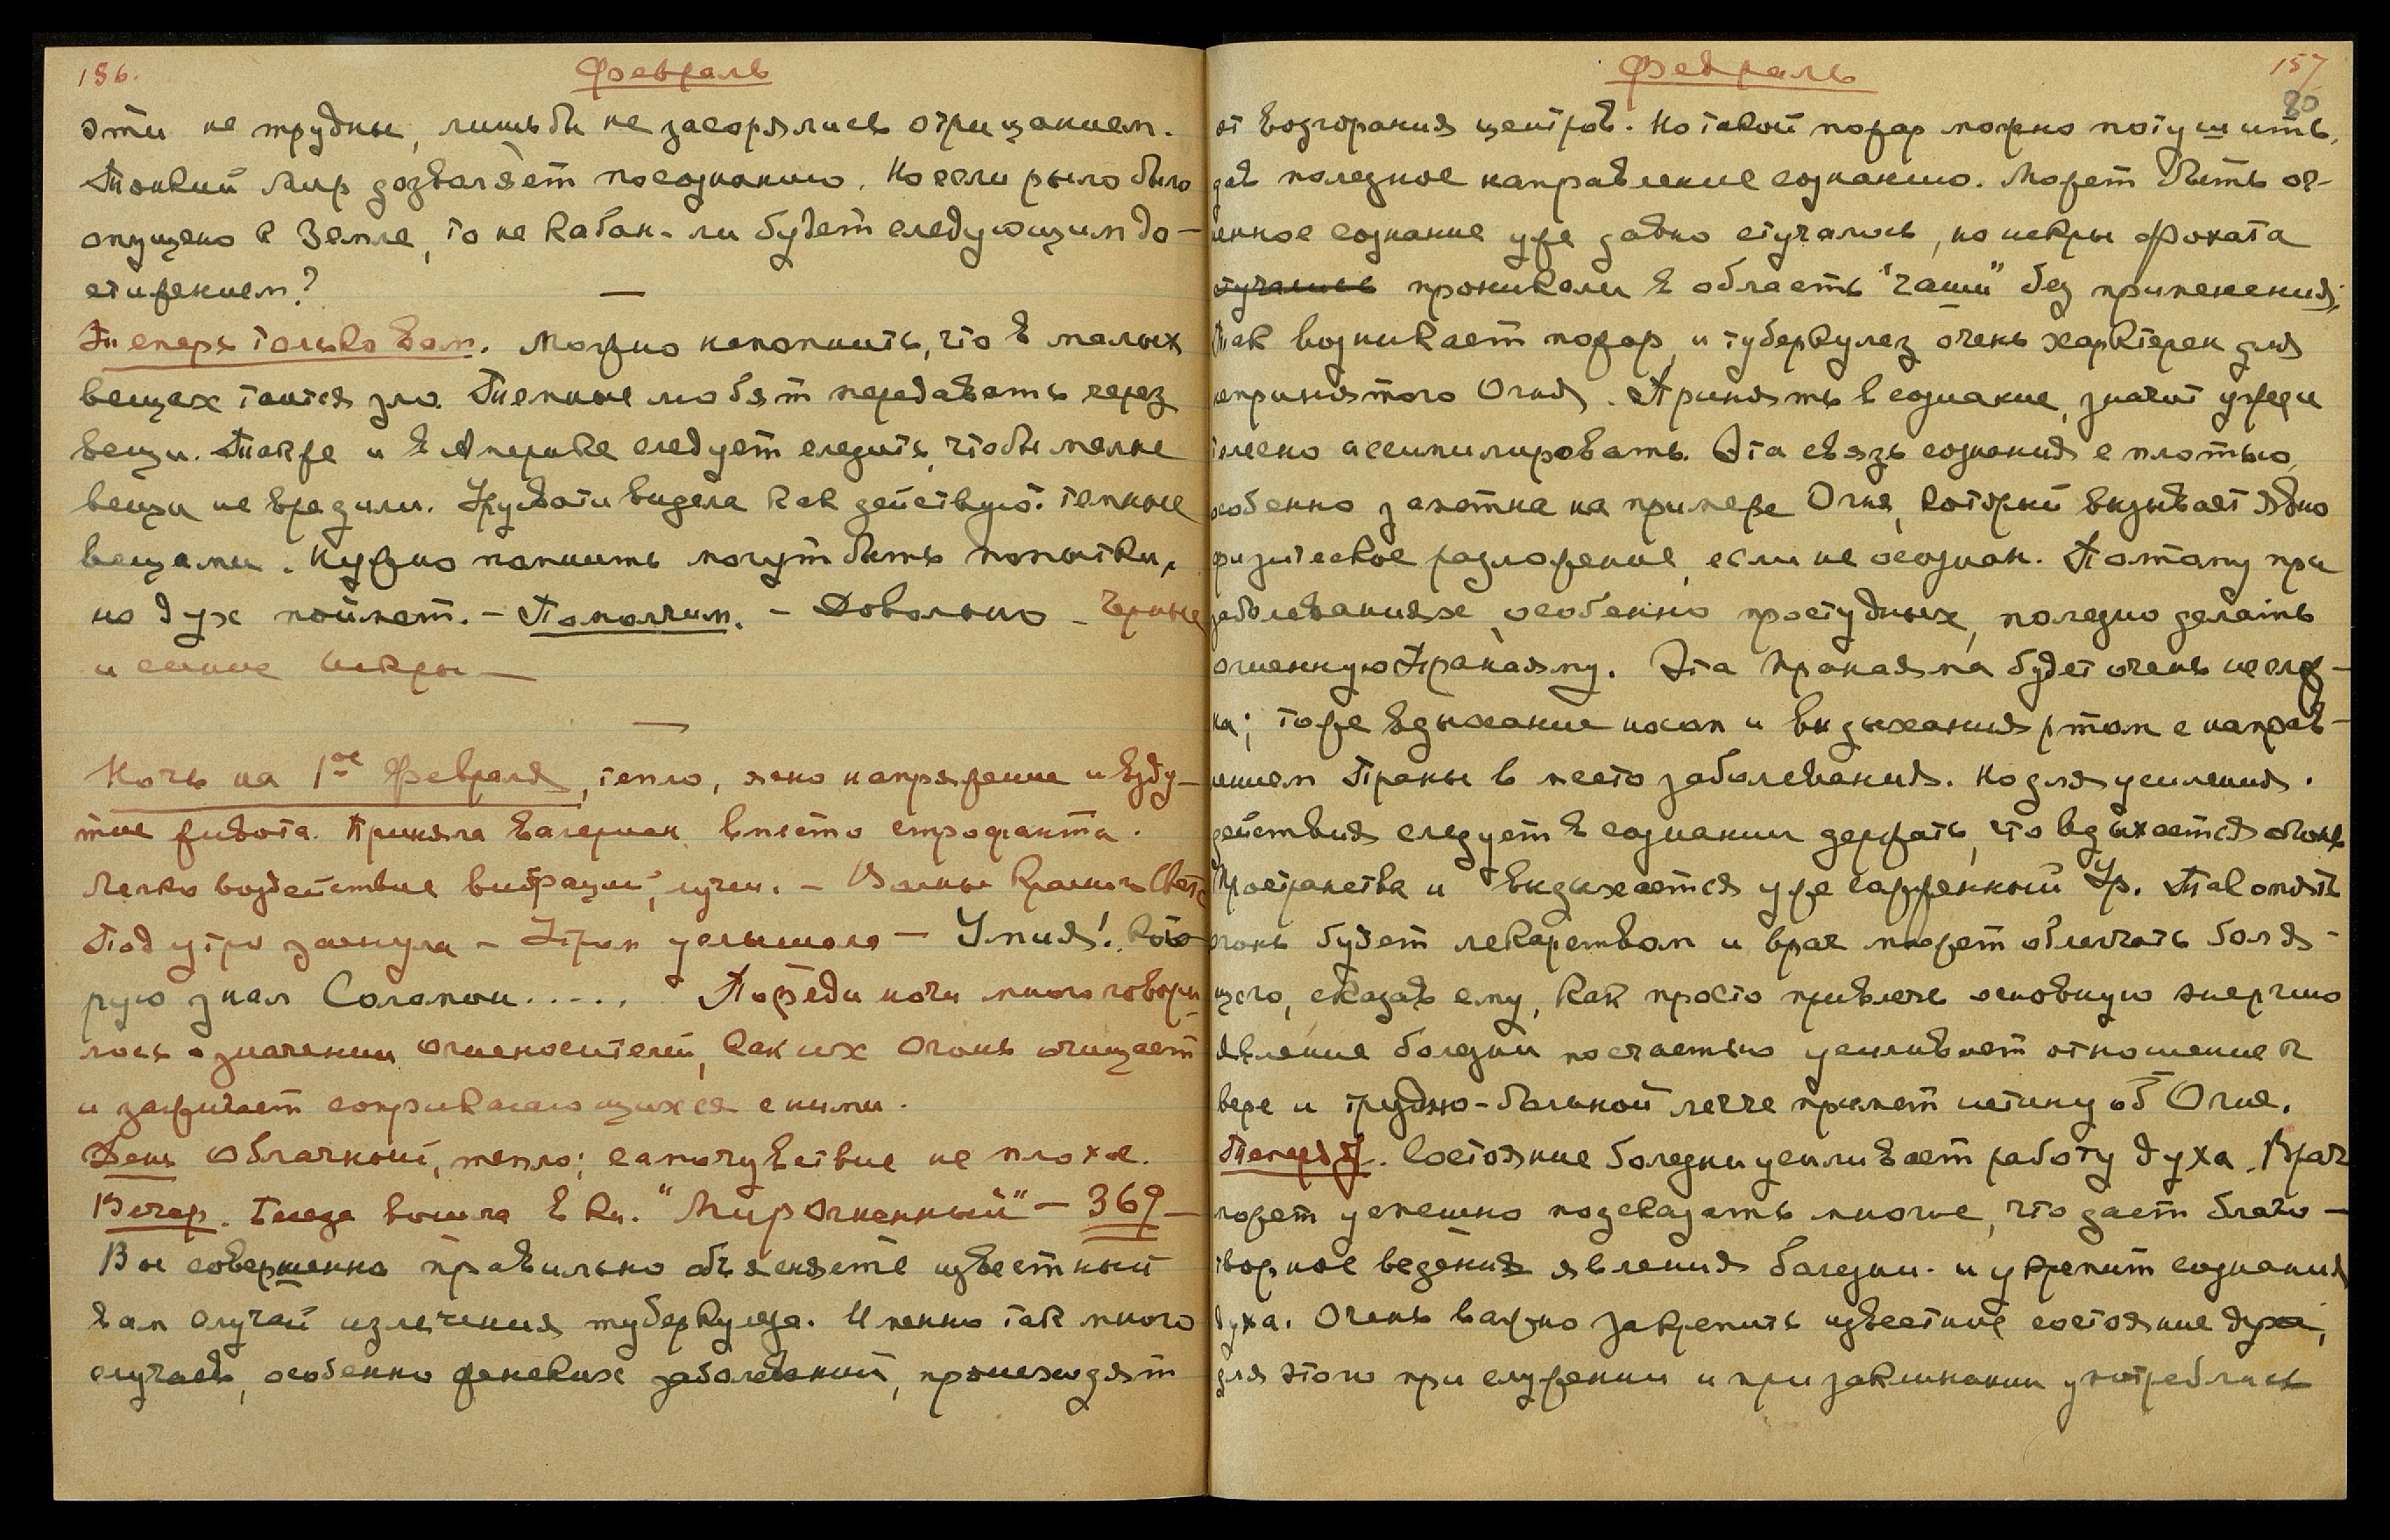 156.
Февраль
эти не трудны, лишь бы не засорялись отрицанием.
Тонкий Мир дозволяет по сознанию. Но если рыло было
опущено к Земле, то не кабан-ли будет следующим до-
стижением?
Теперь только вам. Можно напомнить, что в малых
вещах таится зло. Темные любят передавать через
вещи. Также и в Америке следует следить, чтобы мелкие
вещи не вредили. Урусвати видела как действуют темные
вещами. Нужно помнить могут быть попытки,
но дух поймет. - Помолчим. - Довольно - Черные
и синие искры —
Ночь на 1ое Февраля, тепло, ясно напряжение и взду-
тие живота. Приняла валериан вместо строфанта.
Легко воздействие вибраций, лучи. - Волны красного Света
Под утро заснула - Утром услышала - Умия!, кото
рую знал Соломон..... Посреди ночи много говори-
лось о значении огненосителей, как их Огонь очищает
и зажигает соприкасающихся с ними.
День облачный, тепло; самочувствие не плохое.
Вечер. Беседа вошла в кн. "Мир Огненный" - 369 -
Вы совершенно правильно объясняете известный
вам случай излечения туберкулеза. Именно так много
случаев, особенно женских заболеваний, происходят
Февраль
157
80
от возгорания центров. Но такой пожар можно потушить,
дав полезное направление сознанию. Может быть ог-
ненное сознание уже давно стучалось, но искры Фохата
стучались проникали в область "чаши" без применения;
так возникает пожар, и туберкулез очень характерен для
непринятого Огня. Принять в сознание, значит уже и
телесно ассимилировать. Эта связь сознания с плотью
особенно заметна на примере Огня, который вызывает явно
физическое разложение, если не осознан. Потому при
заболеваниях, особенно простудных, полезно делать
огненную Пранаяму. Эта Пранаяма будет очень неслож-
на; тоже вдыхание носом и выдыхания ртом с направ-
лением Праны в место заболевания. Но для усиления
действия следует в сознании держать, что вдыхается огонь
Пространства и выдыхается уже сожженный Ур. Так опять
огонь будет лекарством и врач может облегчать боля-
щего, сказав ему, как просто привлечь основную энергию
явление болезни по счастью усиливает отношение к
вере и трудно-больной легче примет истину об Огне.
Теперь Я. Состояние болезни усиливает работу духа. Врач
может успешно подсказать многое, что дает благо-
творное ведения явления болезни и укрепит сознания
духа. Очень важно закрепить известное состояние духа,
для этого при служении и при заклинании употреблись